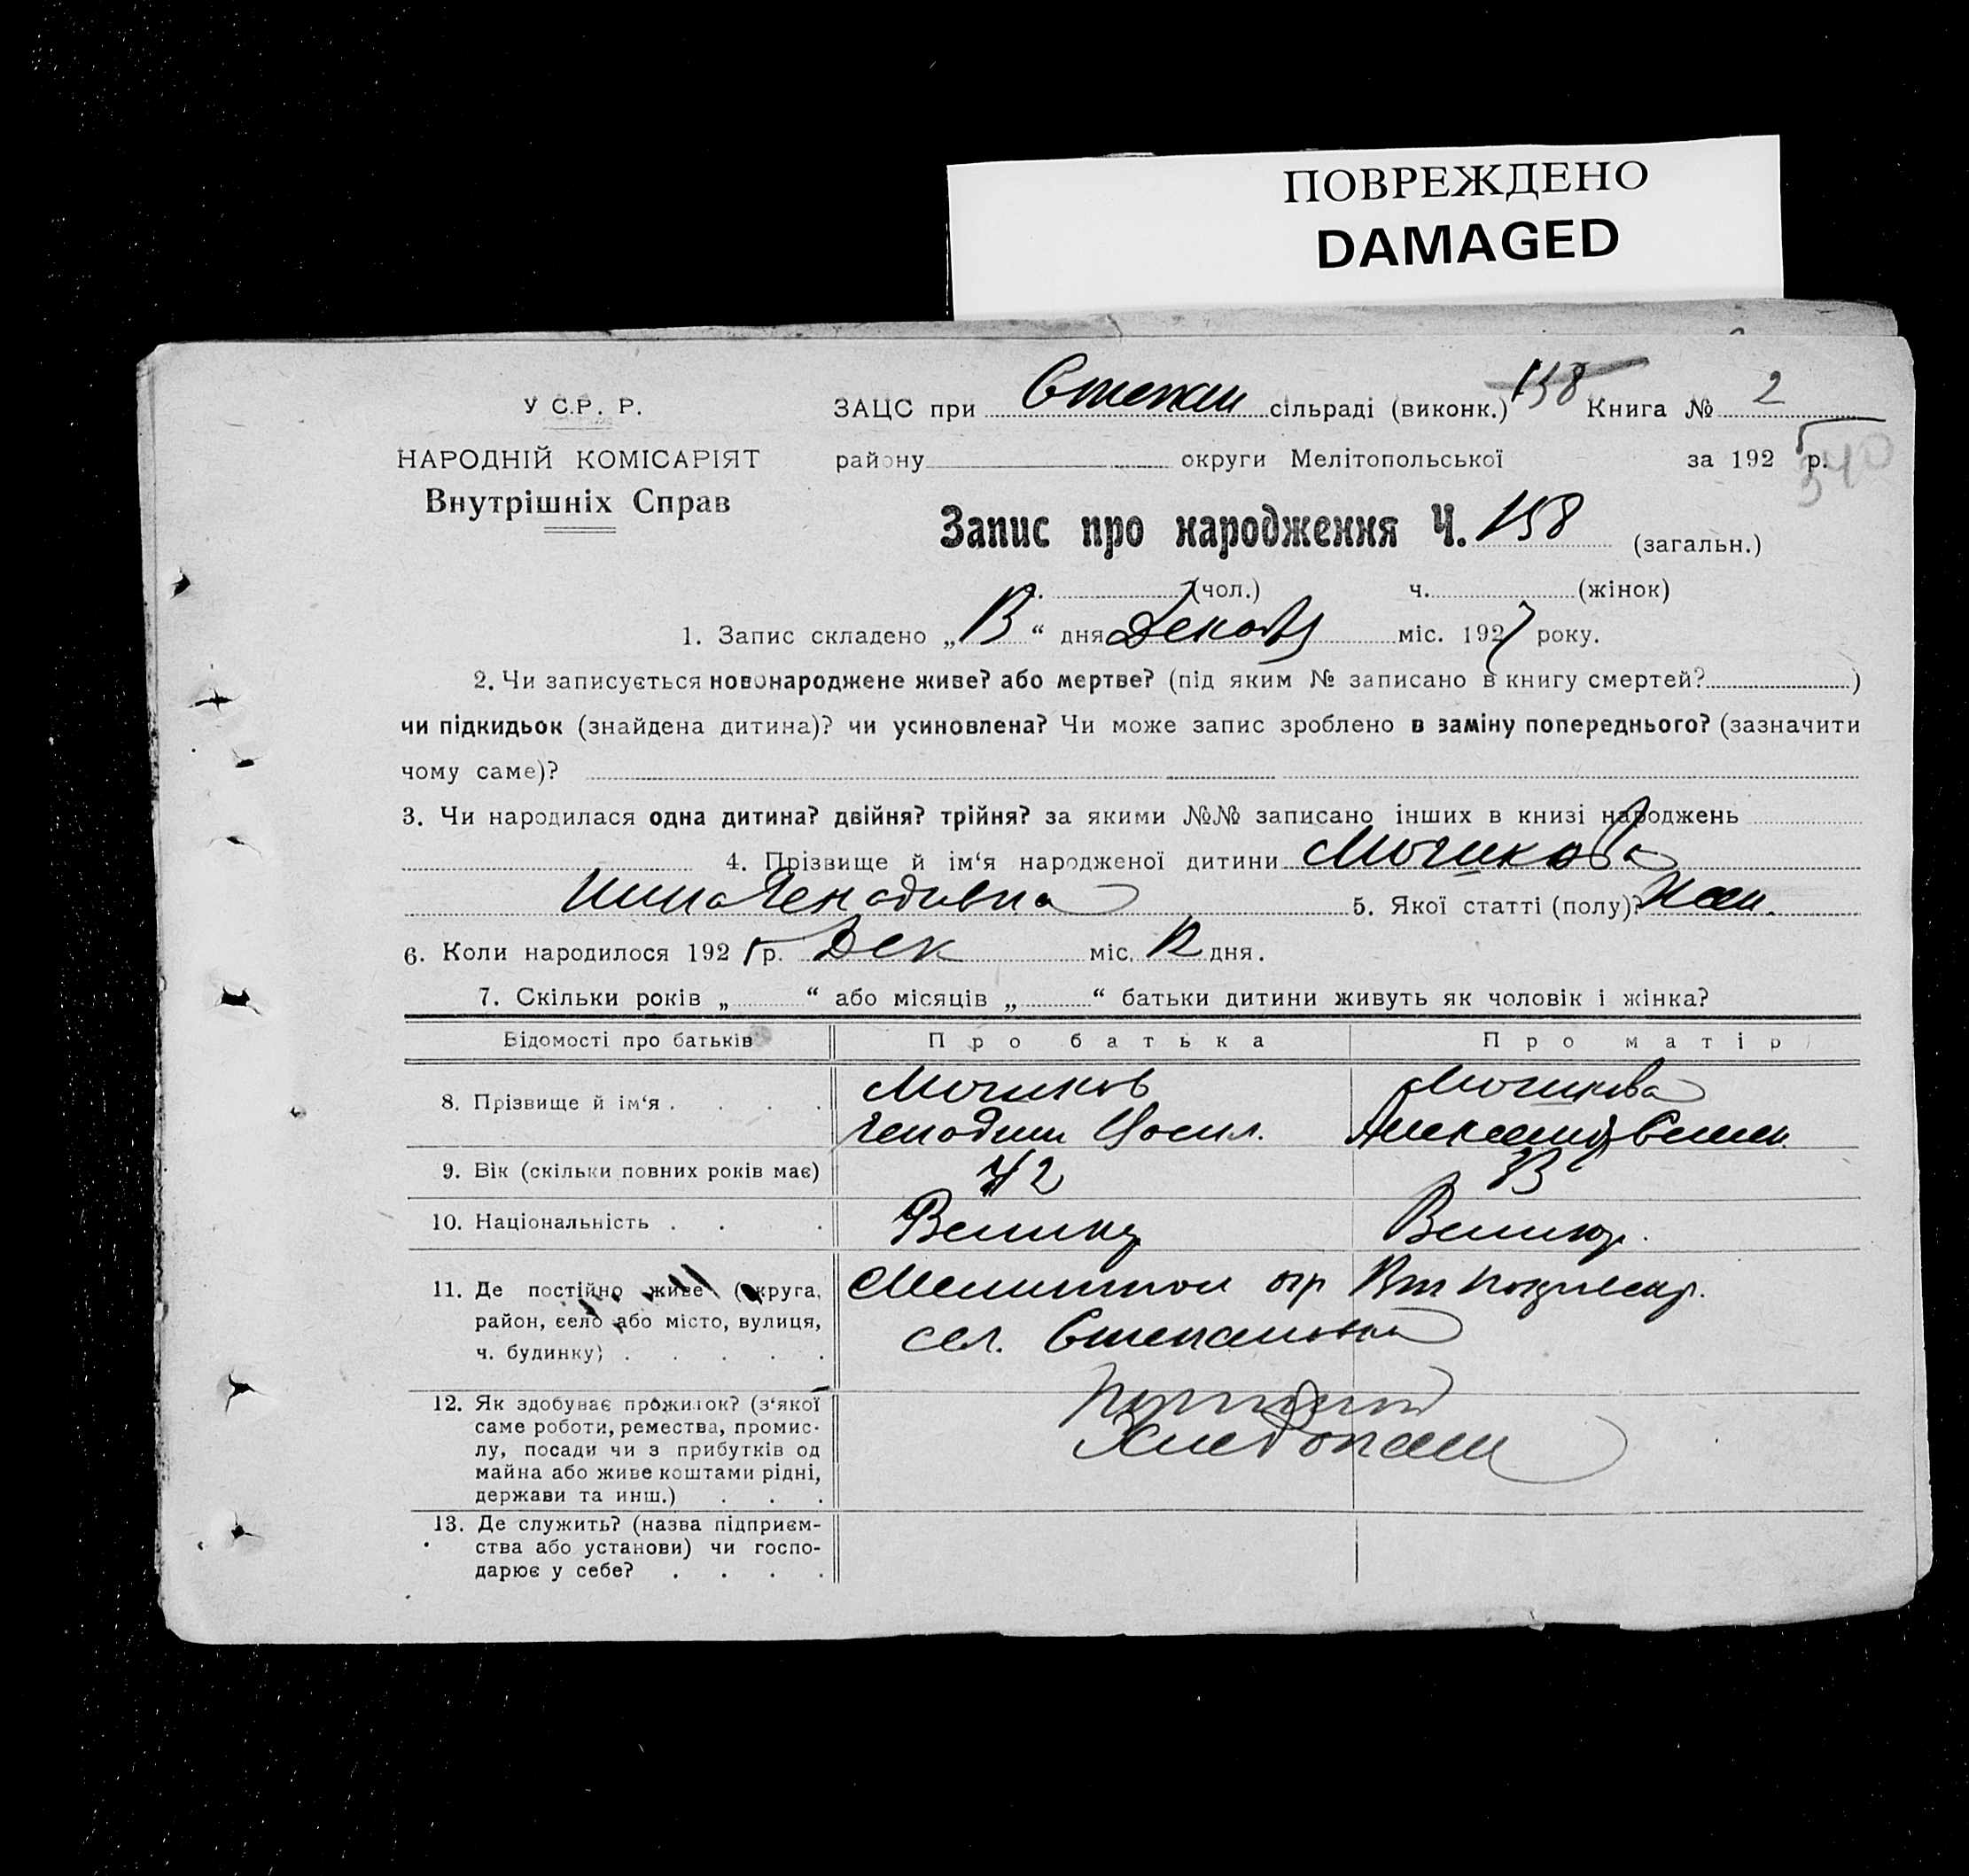 ПОВРЕЖДЕНО
DAMAGED
У С.Р. Р.
НАРОДНІЙ КОМІСАРІЯТ
Внутрішніх Справ
ЗАЦС при Степан сільраді (виконк.) 158 Книга № 2
району округи Мелітопольської за 192 р.
340
Запис про народження Ч. 158 (загальн.)
(чол.) ч. (жінок)
1. Запис складено „ “ дня міс. 192 року.
2. Чи записується новонароджене живе? або мертве? (під яким № записано в книгу смертей? )
чи підкидьок (знайдена дитина)? чи усиновлена? Чи може запис зроблено в заміну попереднього? (зазначити
чому саме)?
3. Чи народилася одна дитина? двійня? трійня? за якими №№ записано інших в книзі народжень
4. Прізвище й ім‘я народженої дитини
Нина Генадивна 5. Якої статті (полу)? Жен.
6. Коли народилося 192 р. Дек міс. 12 дня.
7. Скільки років „ “ або місяців „ “ батьки дитини живуть як чоловік і жінка?
Відомості про батьків Про батька Про матір
8. Прізвище й ім‘я . . . .
9. Вік (скільки повних років має) 42
10. Національність . . . . Великор Великор.
11. Де постійно живе (округа, Мелитопол окр
район, село або місто, вулиця, сел. Степановка
ч. будинку) . . . . .
12. Як здобуває прожиток? (з‘якої
саме роботи, ремества, промис-
лу, посади чи з прибутків од
майна або живе коштами рідні,
держави та инш.) . . .
Хлебопаш
13. Де служить? (назва підприєм-
ства або установи) чи госпо-
дарює у себе? . . . .